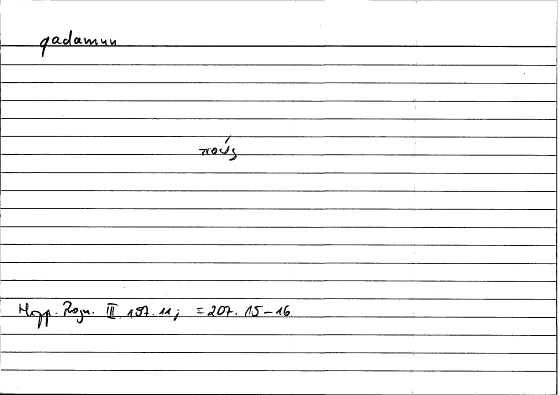 qadamun
πούς
Hipp. Progn. III 157.11; = 207.15–16